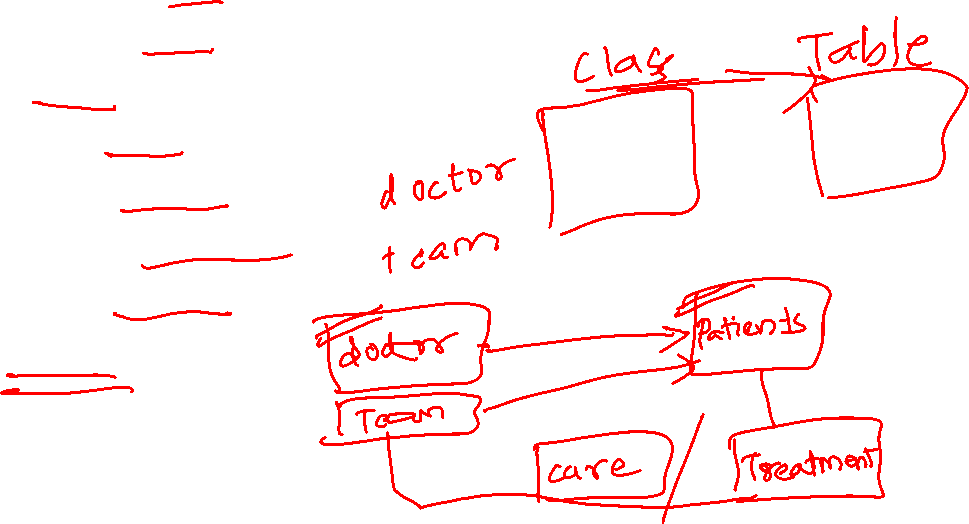 Class Table
doctor
team
doctor
Patients
Team
care
Treatment